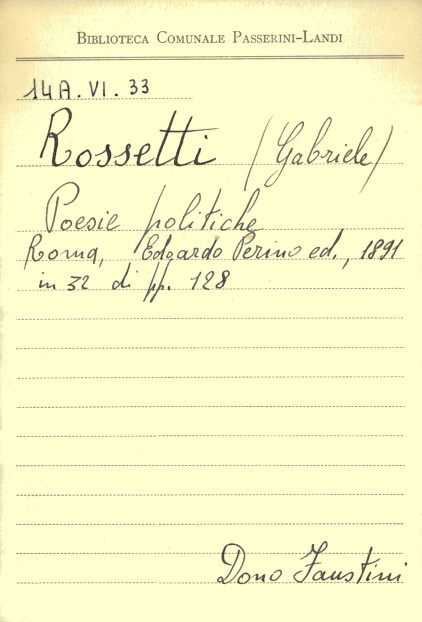 BIBLIOTECA COMUNALE PASSERINI-LANDI
14A.VI.33
Rossetti (Gabriele)
Poesie politiche
Roma, Edoardo Perino ed., 1891
in 32 di pp. 128
Dono Faustini